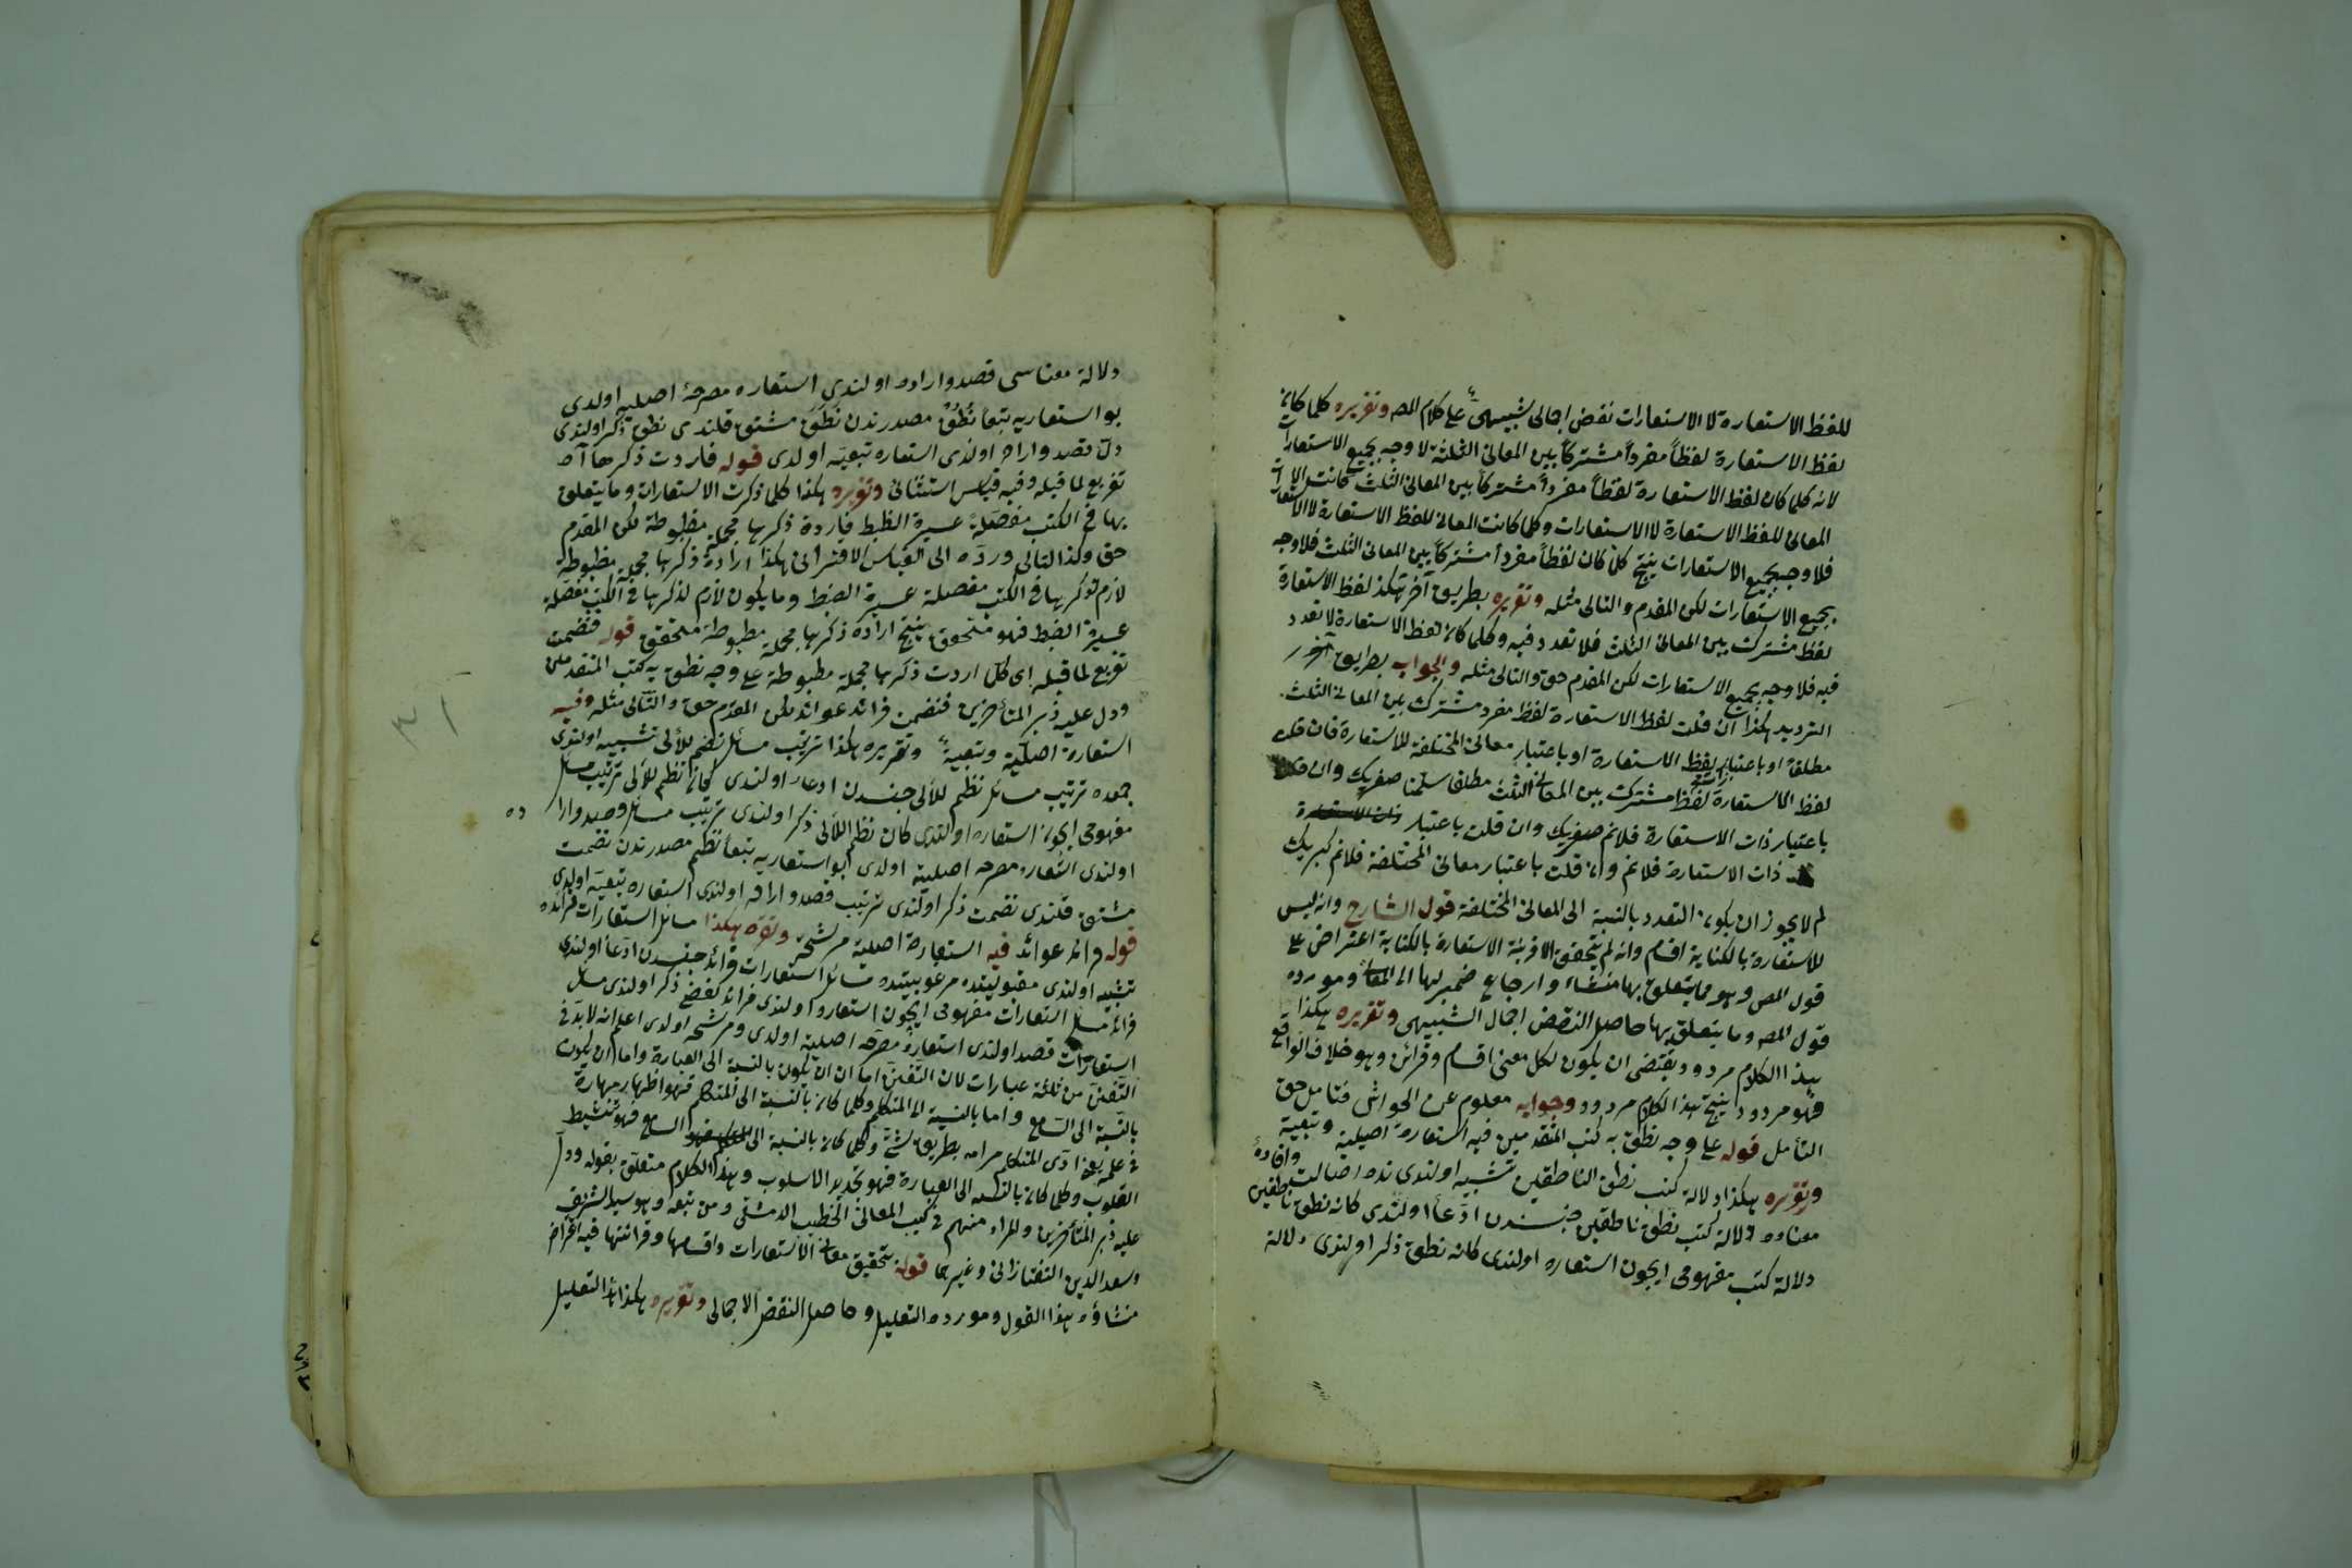 للفظ الاستعارة لا الاستعارات نقض اجمالى شبيهىٌّ على كلام المص وتقريره كلما كان
لفظ الاستعارة لفظاً مفرداً مشتركاً بين المعانى الثلثة لا وجه بجميع الاستعارات
لانه كلما كان لفظ الاستعارة لفظاً مفرداً مشتركاً بين المعانى الثلث كانت
المعانى للفظ الاستعارة لا الاستعارات وكلما كانت المعانى للفظ الاستعارة لا الاستعارات
فلا وجه بجميع الاستعارات ينتج كلما كان لفظاً مفرداً مشتركاً بين المعانى الثلث فلا وجه
بجميع الاستعارات لكن المقدم والتالى مثله وتقريره بطريق آخر هكذا لفظ الاستعارة
لفظ مشترك بين المعانى الثلث فلا تعدد فيه وكلما كان لفظ الاستعارة لا تعدد
فيه فلا وجه بجميع الاستعارات لكن المقدم حق والتالى مثله والجواب بطريق آخر
الترديد هكذا ان قلت لفظ الاستعارة لفظ مفرد مشترك بين المعانى الثلث
مطلقاً او باعتبار لفظ الاستعارة او باعتبار معانى المختلفة للاستعارة فان قلت
لفظ الاستعارة لفظاً مشترك بين المعانى الثلث مطلقا سلمنا صغريك وان قلت
باعتبار ذات الاستعارة فلانم صغريك وان قلت باعتبار ذات الاستعارة
ذات الاستعارة فلانم وان قلت باعتبار معانى المختلفة فلانم كبريك
لم لا يجوز ان يكون التعدد بالنسبة الى المعانى المختلفة قول الشارح وانه ليس
للاستعارة بالكناية اقسام وانه لم يتحقق الا قرينة الاستعارة بالكناية اعتراض على
قول المص وهو مما يتعلق بها منشاء وارجاع ضمير بها الى المعانى ومورده
قول المص وما يتعلق بها حاصل النقض اجمال الشبيهى وتقريره هكذا
هذا الكلام مردود ويقتضى ان يكون لكل معنى اقسام وقرائن وهو خلاف الواقع
فهو مردود ينتج هذا الكلام مردود وجوابه معلوم عن الحواشى فتامل حق
التأمل قوله على وجه نطق به كتب المتقدمين فيه استعارة اصلية وتبعية
وتقريره هكذا دلالة كتب نطق الناطقين تشبيه اولندى نده ايصالنده وافاده
معناده دلالة كتب نطق ناطقين جنسندن ادعاء اولندى كانه نطق ناطقين
دلالة كتب مفهومى ايچون استعاره اولندى كانه نطق ذكر اولندى دلالة
دلالة معناسى قصد واراده اولندى استعاره مصرحهٔ اصليه اولدى
بو استعاريه تبعا نُطْقٌ مصدرندن نَطَقَ مشتق قلندى نطق ذكر اولندى
دلّ قصد واراده اولندى استعاره تبعيّه اولدى قوله فاردت ذكرها آه
تفريع لما قبله وفيه قياس استثنائى وتقريره هكذا كلما ذكرت الاستعارات وما يتعلق
بها فى الكتب مفصّلة عسيرة الظبط فاردة ذكرها مجملة مظبوطة لكن المقدم
حق وكذا التالى وردّه الى القياس الاقترانى هكذا ارادة ذكرها مجملة مظبوطة
لازم لذكرها فى الكتب مفصلة عسيرة الضبط وما يكون لازم لذكرها فى الكتب مفصّلة
عسيرة الضبط فهو متحقق ينتج ارادة ذكرها مجملة مظبوطة متحقق قوله فنضمت
تفريع لما قبله اى كلّ اردت ذكرها مجملة مظبوطة على وجه نطق به كتب المتقدمين
ودل عليه زبر المتأخرين فنضمت فرائد عوائد لكن المقدم حق والتالى مثله وفيه
استعارة اصليّة وتبعيّةً وتقريره هكذا ترتيب مسائل نظم للآلى تشبيه اولندى
جمعده ترتيب مسائل نظم للآلى جنسندن ادعاء اولندى كانه نظم للآلى ترتيب مسائل
مفهومى ايچون استعاره اولندى كان نظم اللآلى ذكر اولندى ترتيب مسائل قصد وارا
ده
اولندى استعاره مصرحه اصليه اولدى بو استعاريه تبعاً نظم مصدرندن نضمت
مشتق قلندى نضمت ذكر اولندى ترتيب قصد واراده اولندى استعاره تبعيّه اولدى
قوله فرائد عوائد فيه استعارة اصلية مرشحة وتقريره هكذا مسائل استعارات فرائده
تشبيه اولندى مقبوليتده مرغوبيتده مسائل استعارات فرائد جنسندن ادّعاء اولندى
فرائد مسائل استعارات مفهومى ايچون استعاره اولندى فرائد لفظى ذكر اولندى مسائل
استعارات قصد اولندى استعارهٔ مصرحه اصليه اولدى ومرشحه اولدى اعلم انه لابدّ فى
التفنن من ثلثة عبارات لان التفنن اما ان ان يكون بالنسبة الى العبارة واما ان يكون
بالنسبة الى السامع واما بالنسبة الى المتكلم وكلما كان بالنسبة الى المتكلم فهو اظهار مهارة
فى علمه يعنى ادّى المتكلم مرامه بطريق شتّى وكلما كان بالنسبة الى السامع فهو تنشيط
القلوب وكلما كان بالنسبه الى العبارة فهو تجديد الاسلوب وهذا الكلام متعلق بقوله ودل
عليه زبر المتأخرين والمراد منهم فى كتب المعانى الخطيب الدمشقى ومن تبعه وهو سيد الشريف
وسعد الدين التفتازانى وغيرهما قوله بتحقيق معانى الاستعارات واقسامها وقرائنها فيه اعتراض
منشاؤه هذا القول ومورده التعليل وحاصل النقض الاجمالى وتقريره هكذا هذا التعليل